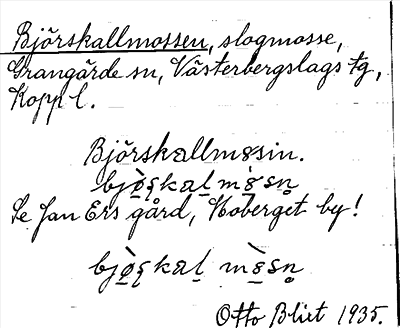 Björskallmossen, slogmosse,
Grangärde sn, Västerbergslags tg,
Kopp l.
Björskallmosin.
Se Jan Ers gård, Hoberget by!
Otto Blixt 1935.